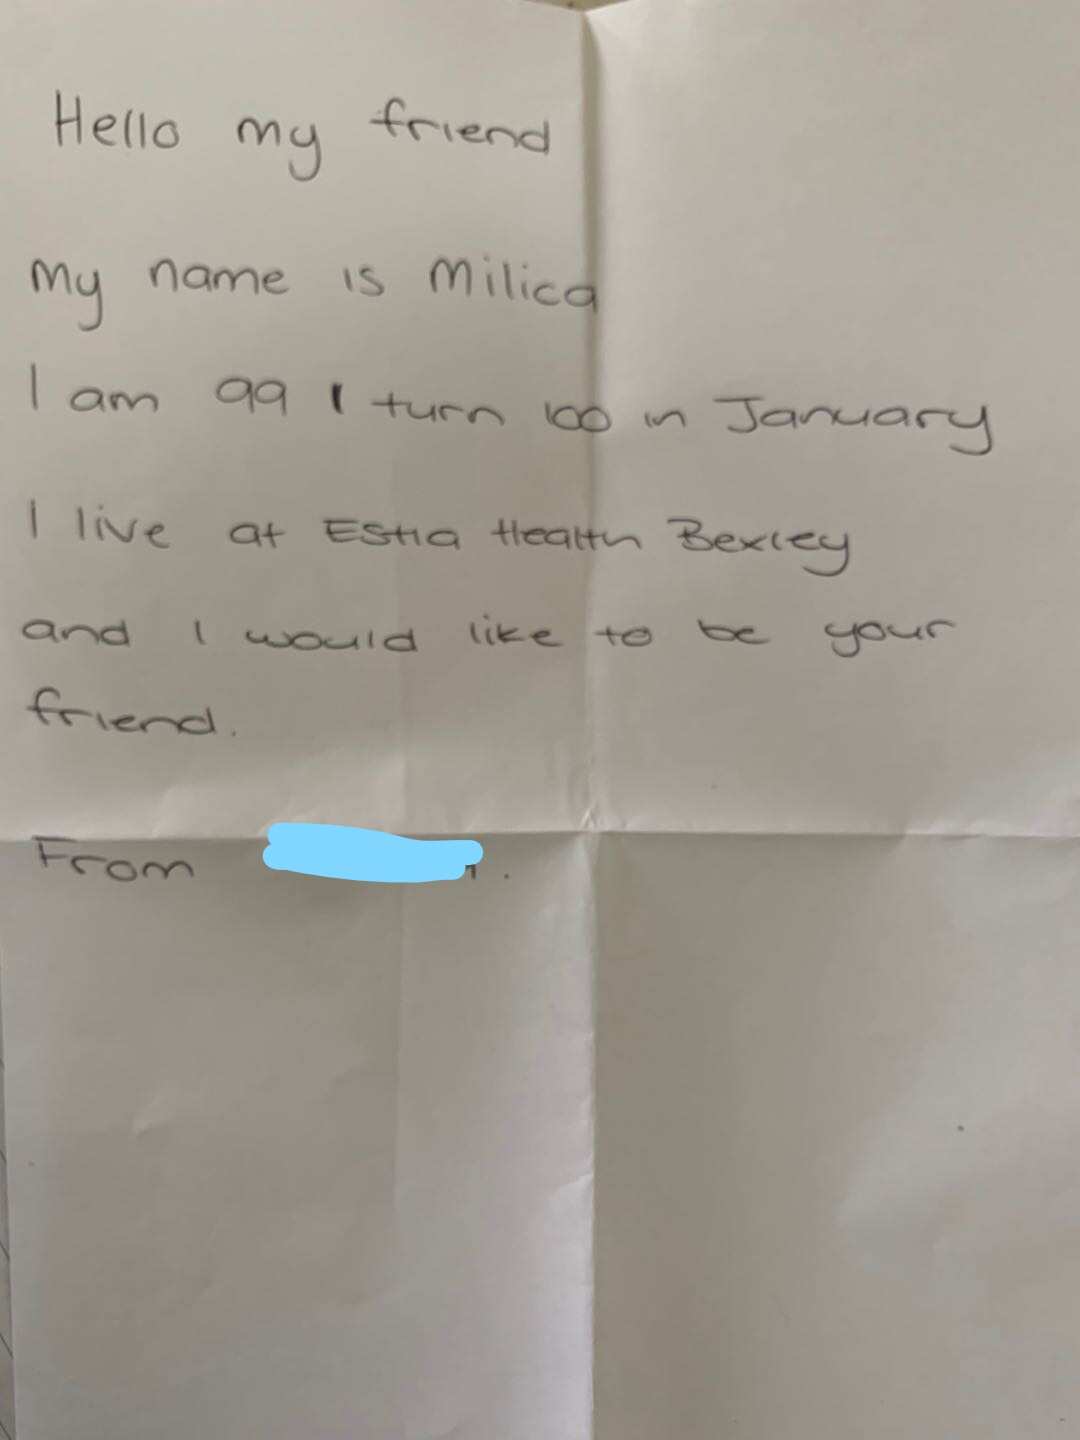 Hello my friend
My name is Milica
I am 99 I turn 100 in January
I live at Estia Health Bexley
and I would like to be your
friend.
From